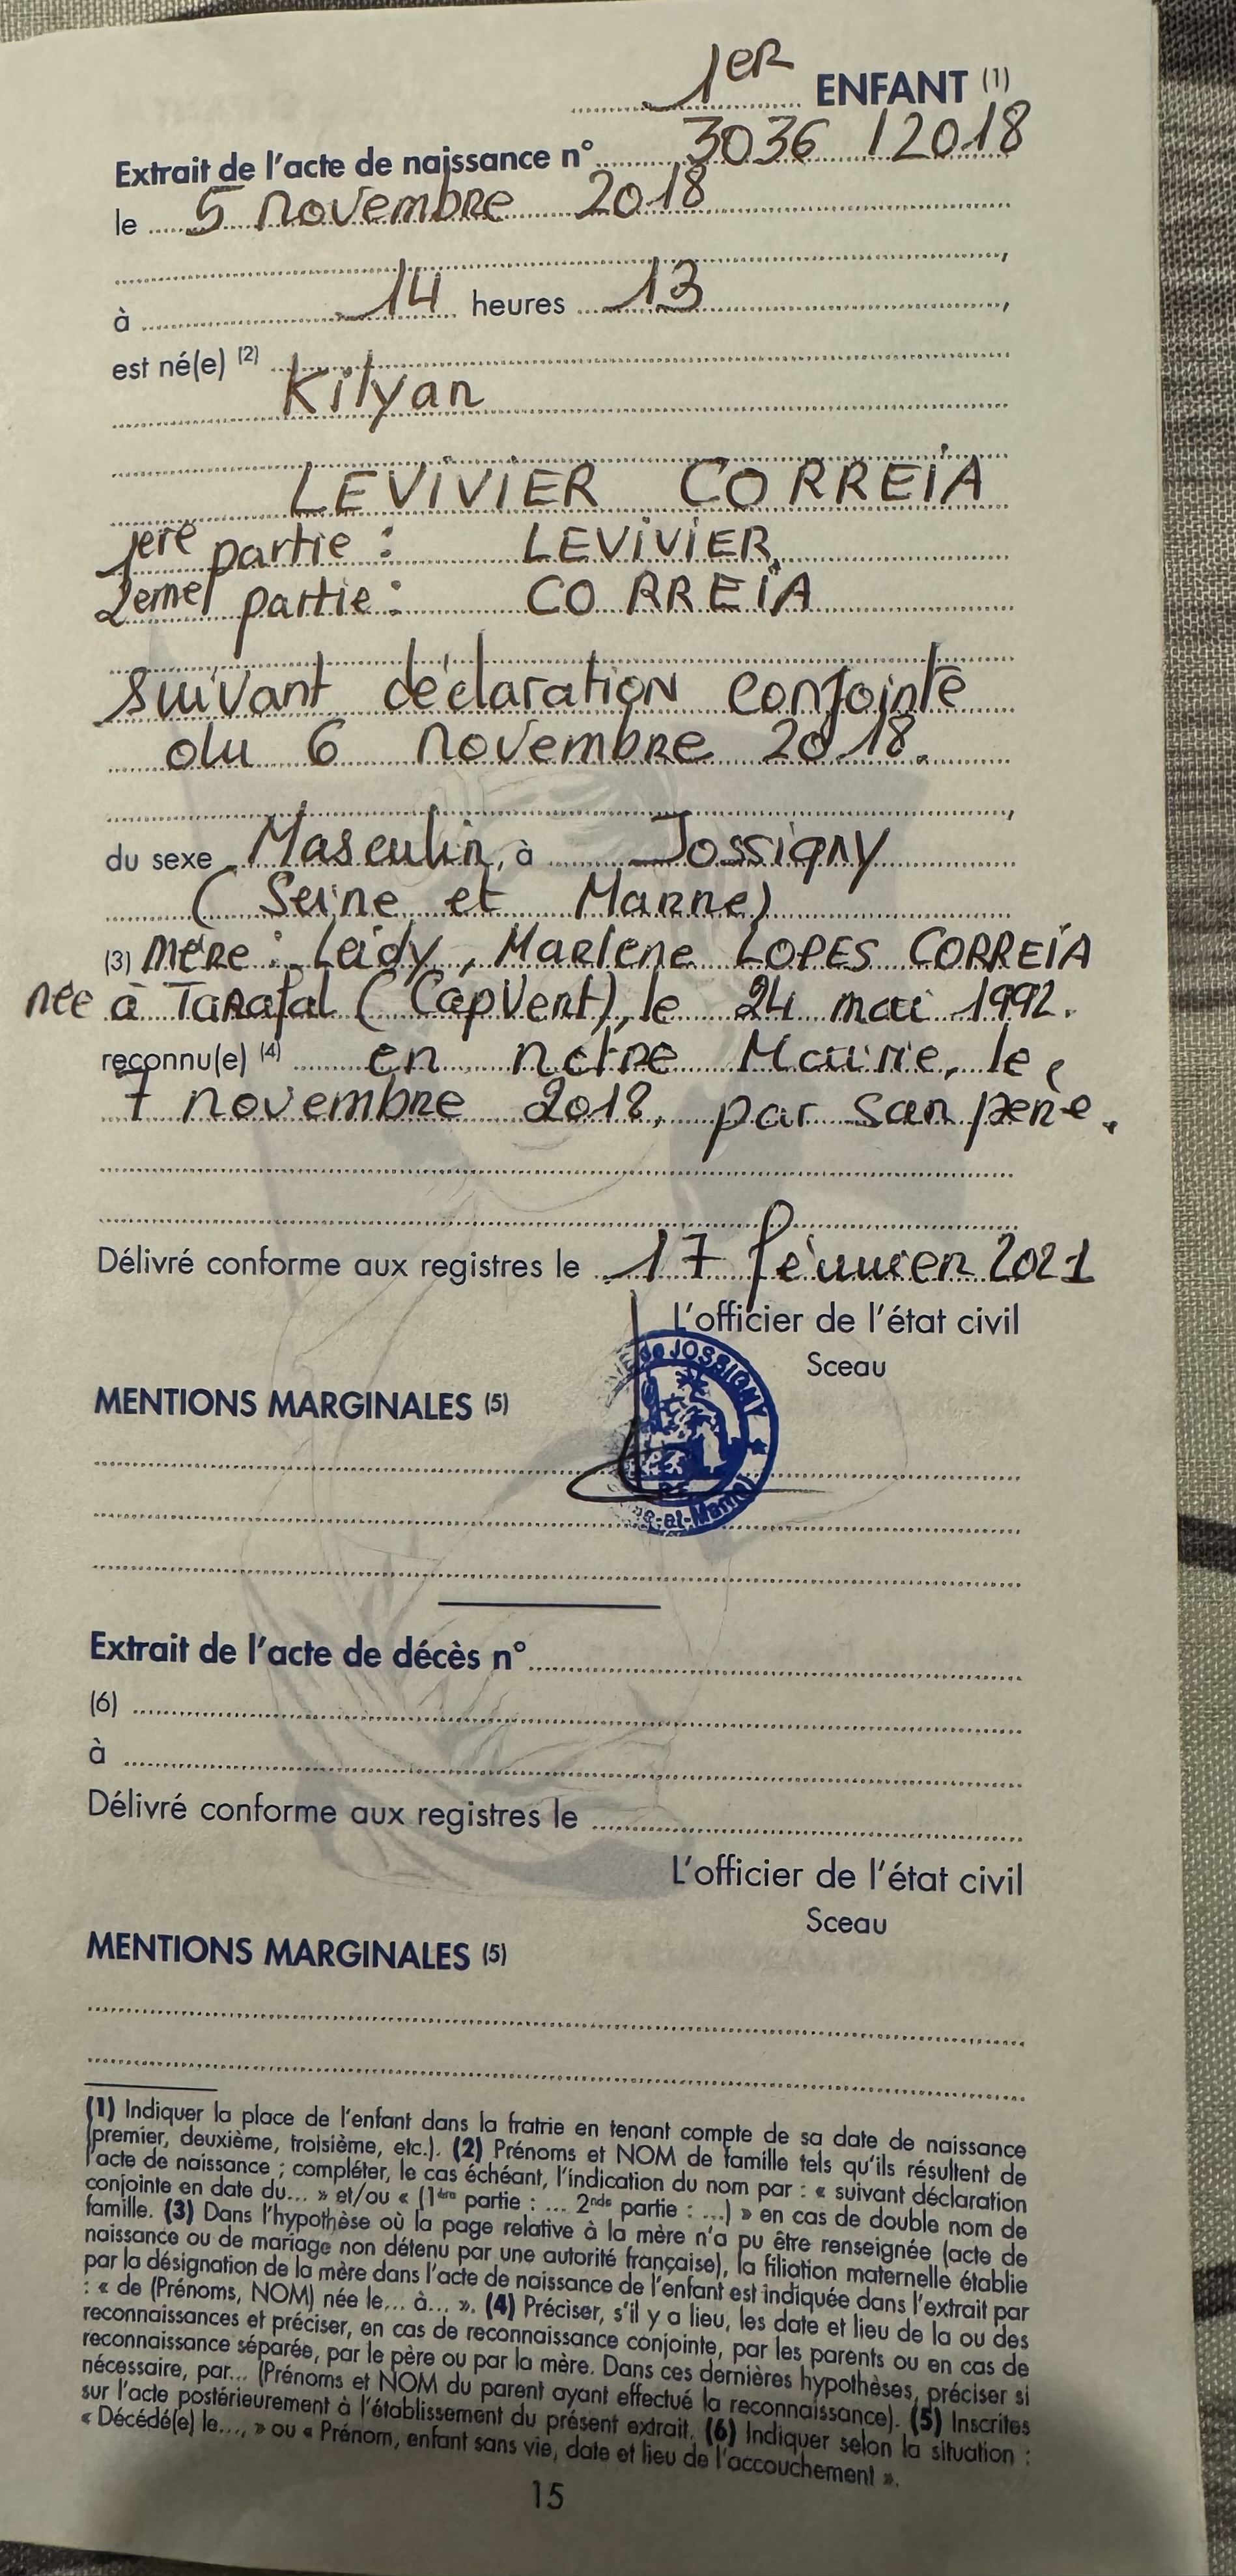 1ER ENFANT (1)
Extrait de l'acte de naissance n° 3036 / 2018
le 5 novembre 2018
à 14 heures 13,
est né(e) (2)
Kilyan
LEVIVIER CORREIA
1ere partie : LEVIVIER
2eme partie : CORREIA
suivant déclaration conjointe
du 6 novembre 2018.
du sexe Masculin, à Jossigny
(Seine et Marne)
(3) mère : Leidy, Marlene LOPES CORREIA
née à Tarafal (Cap Vert), le 24 mai 1992.
reconnu(e) (4) en notre Mairie, le
7 novembre 2018, par son père.
Délivré conforme aux registres le 17 février 2021
L'officier de l'état civil
Sceau
de JOSSIGNY
et-Marne
MENTIONS MARGINALES (5)
Extrait de l'acte de décès n°
(6)
à
Délivré conforme aux registres le
L'officier de l'état civil
Sceau
MENTIONS MARGINALES (5)
(1) Indiquer la place de l'enfant dans la fratrie en tenant compte de sa date de naissance
(premier, deuxième, troisième, etc.). (2) Prénoms et NOM de famille tels qu'ils résultent de
l'acte de naissance ; compléter, le cas échéant, l'indication du nom par : « suivant déclaration
conjointe en date du... » et/ou « (1ère partie : ... 2nde partie : ...) » en cas de double nom de
famille. (3) Dans l'hypothèse où la page relative à la mère n'a pu être renseignée (acte de
naissance ou de mariage non détenu par une autorité française), la filiation maternelle établie
par la désignation de la mère dans l'acte de naissance de l'enfant est indiquée dans l'extrait par
: « de (Prénoms, NOM) née le... à... ». (4) Préciser, s'il y a lieu, les date et lieu de la ou des
reconnaissances et préciser, en cas de reconnaissance conjointe, par les parents ou en cas de
reconnaissance séparée, par le père ou par la mère. Dans ces dernières hypothèses, préciser si
nécessaire, par... (Prénoms et NOM du parent ayant effectué la reconnaissance). (5) Inscrites
sur l'acte postérieurement à l'établissement du présent extrait. (6) Indiquer selon la situation :
« Décédé(e) le..., » ou « Prénom, enfant sans vie, date et lieu de l'accouchement ».
15